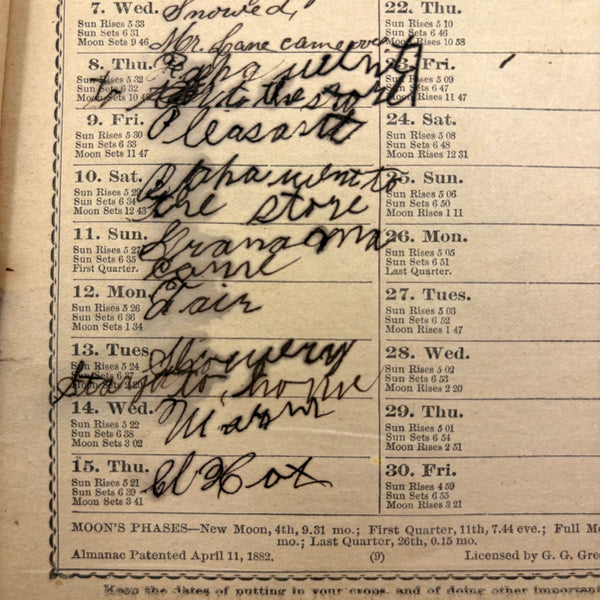 7. Wed. Snowed,
Sun Rises 5 33
Sun Sets 6 31
Moon Sets 9 46
Mr. Lane came over
8. Thu. Papa went
Sun Rises 5 32
Sun Sets 6 32
Moon Sets 10 48
to the store
9. Fri. Pleasant
Sun Rises 5 30
Sun Sets 6 33
Moon Sets 11 47
10. Sat. Papa went to
Sun Rises 5 29
Sun Sets 6 34
Moon Sets 12 43
the store
11. Sun. Grandma
Sun Rises 5 27
Sun Sets 6 35
First Quarter.
came
12. Mon. Fair
Sun Rises 5 26
Sun Sets 6 36
Moon Sets 1 34
13. Tues. Showery
Sun Rises 5 24
Sun Sets 6 37
home
14. Wed. Warm
Sun Rises 5 22
Sun Sets 6 38
Moon Sets 3 02
15. Thu.
Sun Rises 5 21
Sun Sets 6 39
Moon Sets 3 41
22. Thu.
Sun Rises 5 10
Sun Sets 6 46
Moon Rises 10 58
23. Fri.
Sun Rises 5 09
Sun Sets 6 47
Moon Rises 11 47
24. Sat.
Sun Rises 5 08
Sun Sets 6 48
Moon Rises 12 31
25. Sun.
Sun Rises 5 06
Sun Sets 6 50
Moon Rises 1 11
26. Mon.
Sun Rises 5 05
Sun Sets 6 51
Last Quarter.
27. Tues.
Sun Rises 5 03
Sun Sets 6 52
Moon Rises 1 47
28. Wed.
Sun Rises 5 02
Sun Sets 6 53
Moon Rises 2 20
29. Thu.
Sun Rises 5 01
Sun Sets 6 54
Moon Rises 2 51
30. Fri.
Sun Rises 4 59
Sun Sets 6 55
Moon Rises 3 21
MOON'S PHASES—New Moon, 4th, 9.31 mo.; First Quarter, 11th, 7.44 eve.; Full Mo
mo.; Last Quarter, 26th, 0.15 mo.
Almanac Patented April 11, 1882. (9) Licensed by G. G. Gre
Keep the dates of putting in your crops, and of doing other important